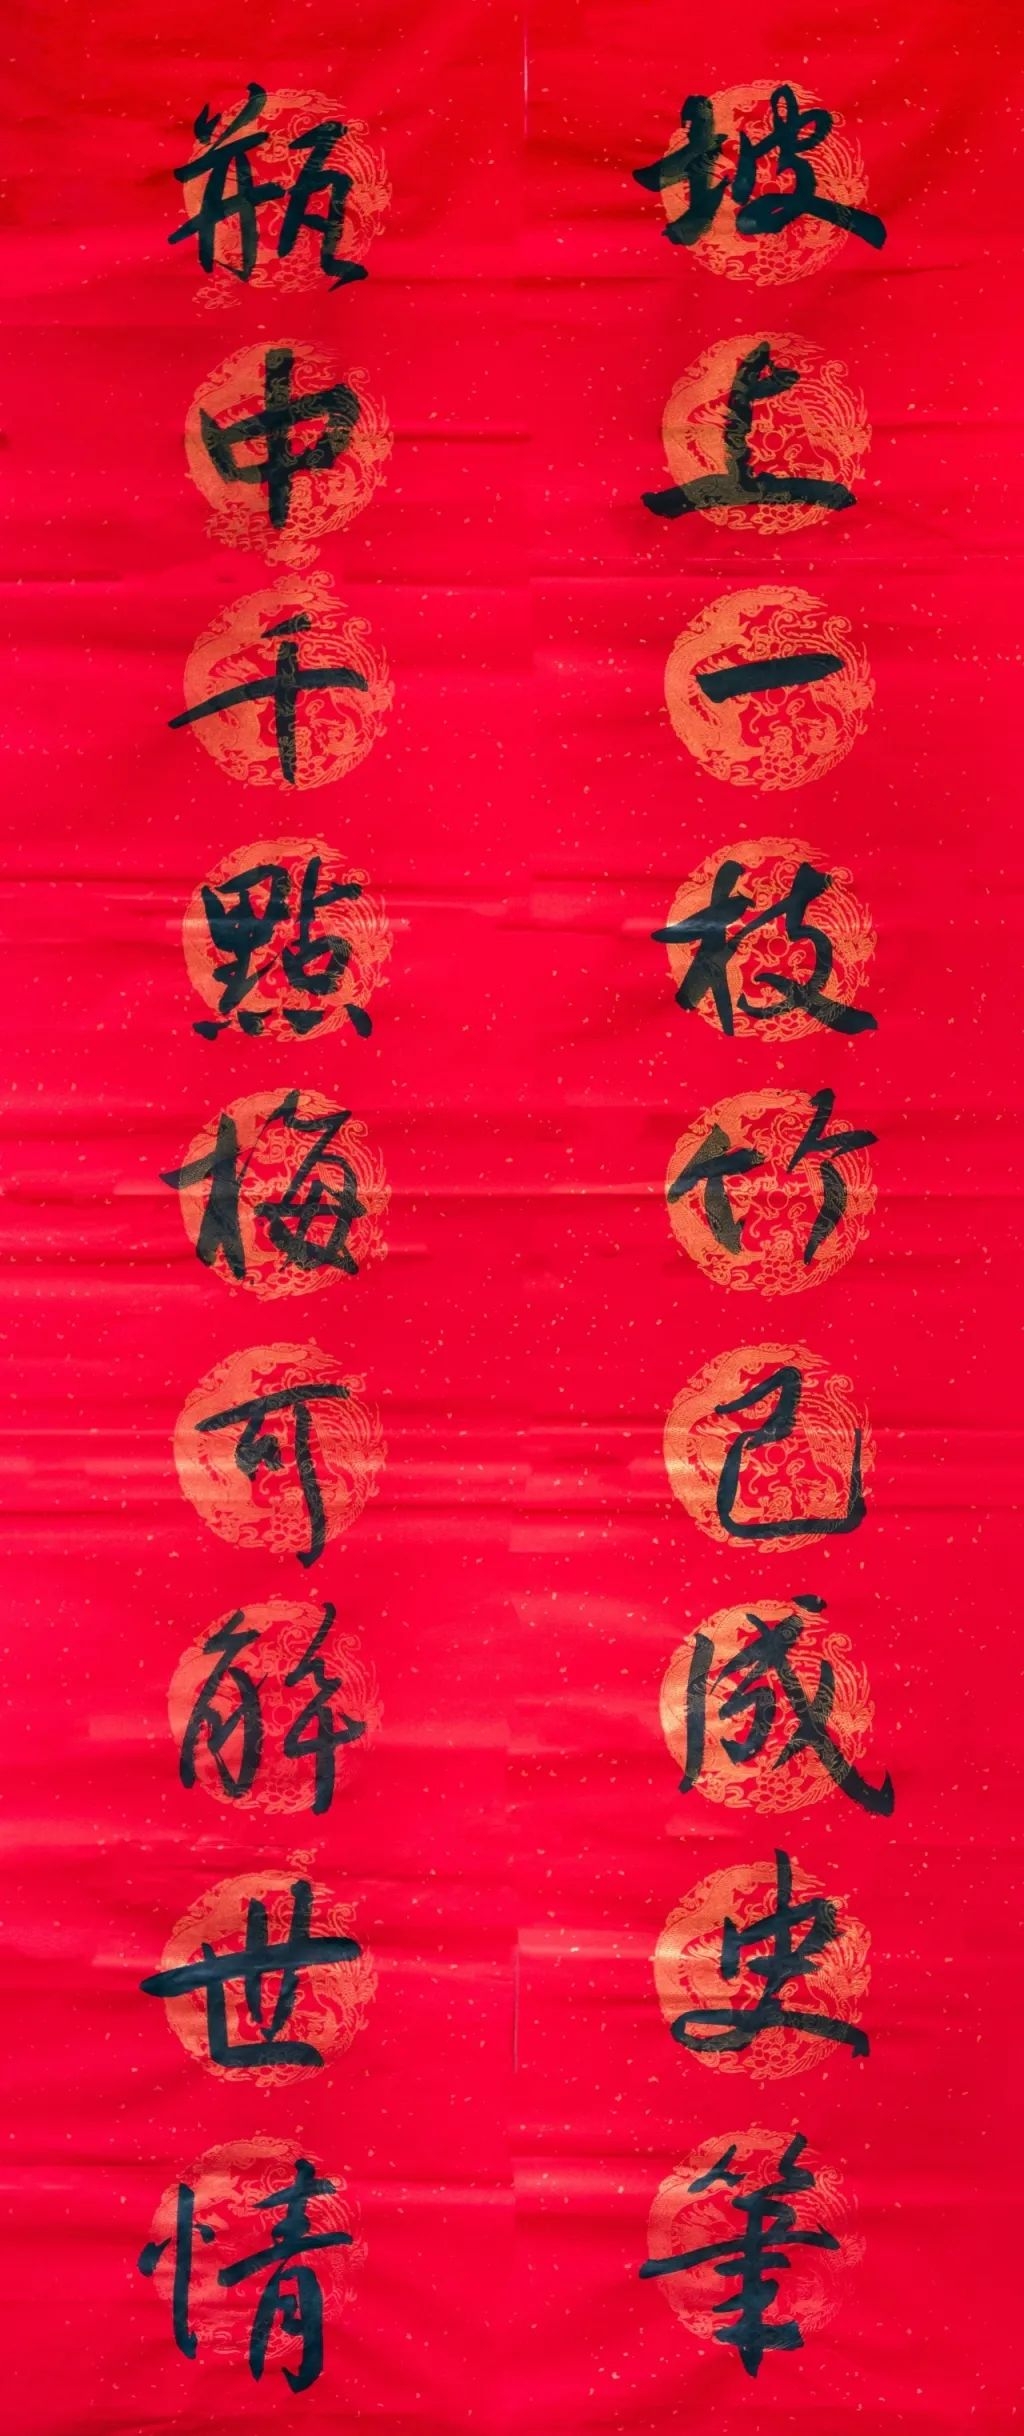 坡上一枝竹已成史筆
瓶中千點梅可解世情